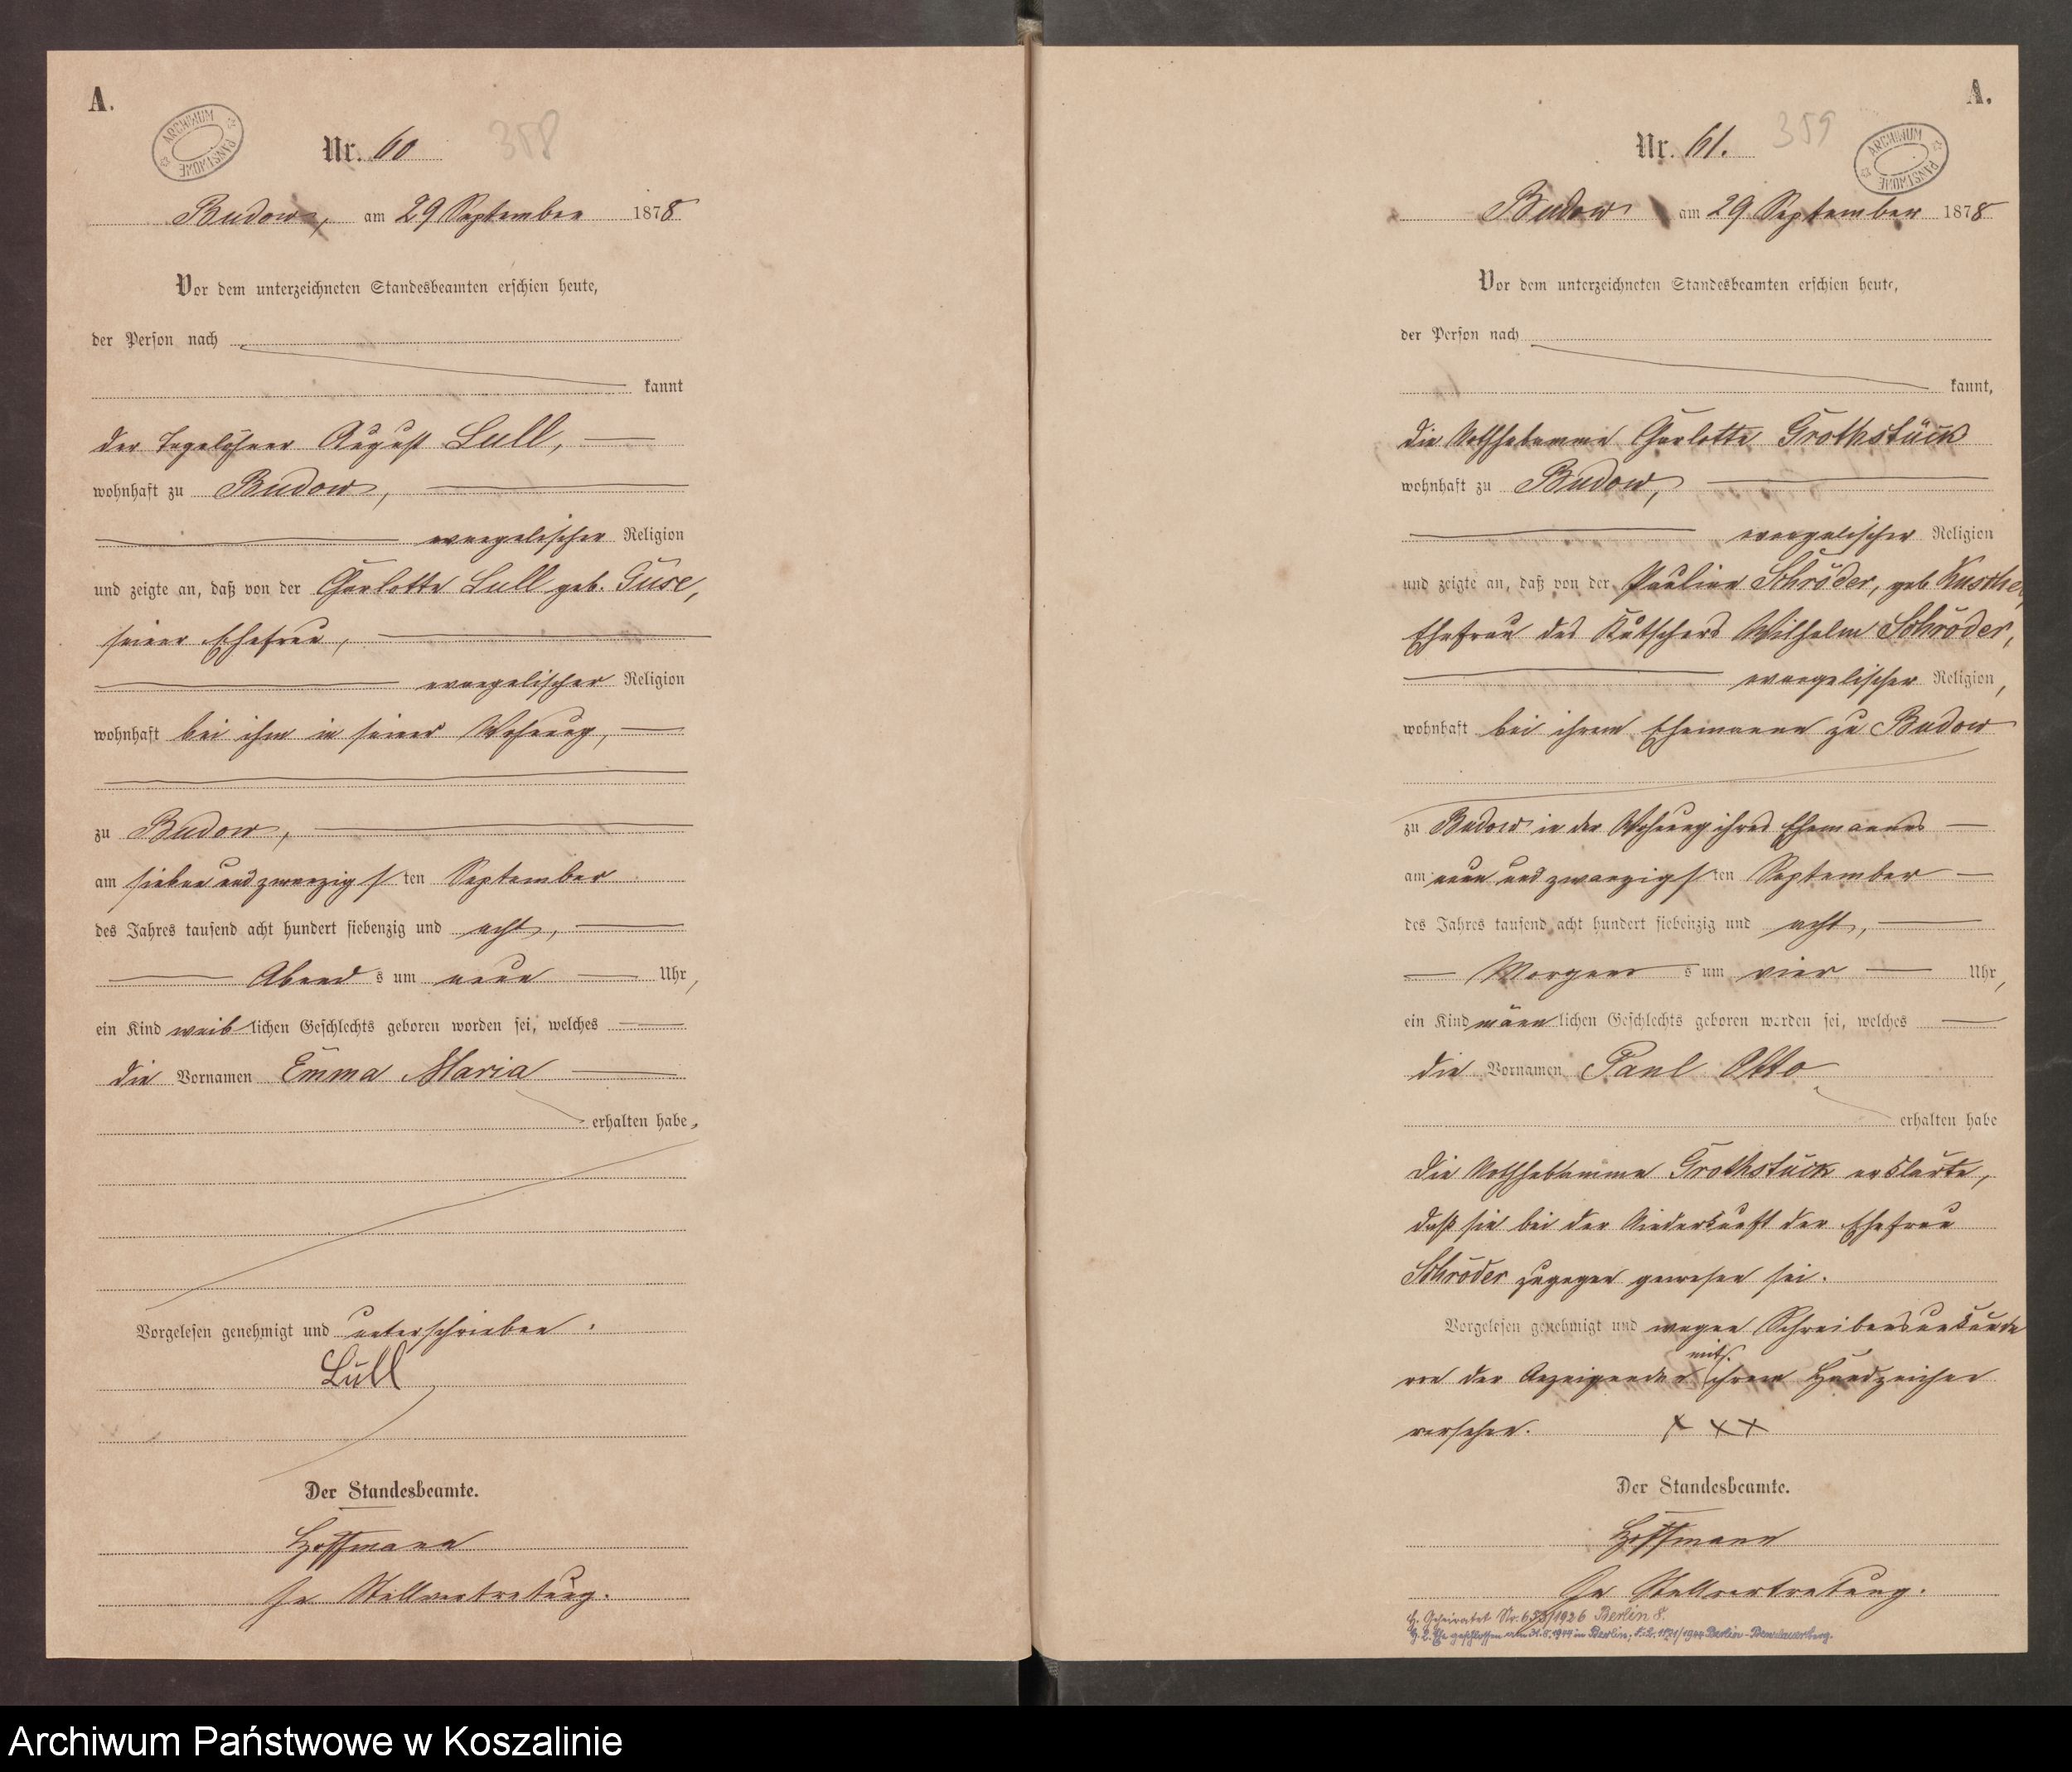 A.
ARCHIWUM PAŃSTWOWE
Nr. 60
358
Budow, am 29 September 1878
Vor dem unterzeichneten Standesbeamten erschien heute,
der Person nach
kannt
der Tagelöhner August Lull,
wohnhaft zu Budow,
evangelischer Religion
und zeigte an, daß von der Charlotte Lull geb. Guse,
seiner Ehefrau,
evangelischer Religion
wohnhaft bei ihm in seiner Wohnung,
zu Budow,
am sieben und zwanzigsten September
des Jahres tausend acht hundert siebenzig und acht,
Abends um neun Uhr,
ein Kind weiblichen Geschlechts geboren worden sei, welches
die Vornamen Emma Maria
erhalten habe,
Vorgelesen genehmigt und unterschrieben.
Lull
Der Standesbeamte.
Hoffmann
In Stellvertretung.
A.
ARCHIWUM PAŃSTWOWE
Nr. 61.
359
Budow am 29 September 1878
Vor dem unterzeichneten Standesbeamten erschien heute,
der Person nach
kannt,
die Nothhebamme Charlotte Grothstück
wohnhaft zu Budow,
evangelischer Religion
und zeigte an, daß von der Pauline Schröder, geb
Ehefrau des Kutschers Wilhelm Schröder,
evangelischer Religion,
wohnhaft bei ihrem Ehemanne zu Budow
zu Budow in der Wohnung ihres Ehemannes
am neun und zwanzigsten September
des Jahres tausend acht hundert siebenzig und acht,
Morgens um vier Uhr,
ein Kind männlichen Geschlechts geboren worden sei, welches
die Vornamen Paul Otto
erhalten habe
Die Nothhebamme Grothstück erklärte,
daß sie bei der Niederkunft der Ehefrau
Schröder zugegen gewesen sei.
Vorgelesen genehmigt und wegen Schreibensunkunde
von der Anzeigenden mit ihrem Handzeichen
versehen. XXX
Der Standesbeamte.
Hoffmann
In Stellvertretung.
Geheiratet Nr. /1926 Berlin 8.
2. Ehe geschlossen am 31.8.1944 in Berlin,
Archiwum Państwowe w Koszalinie